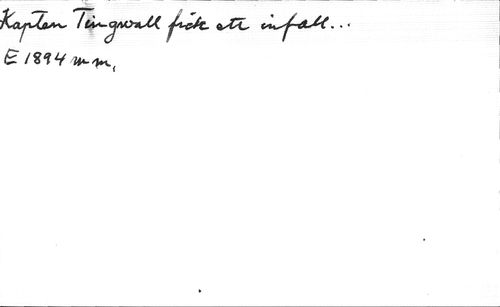 Kapten Tingwall fick ett infall...
E 1894 m m,